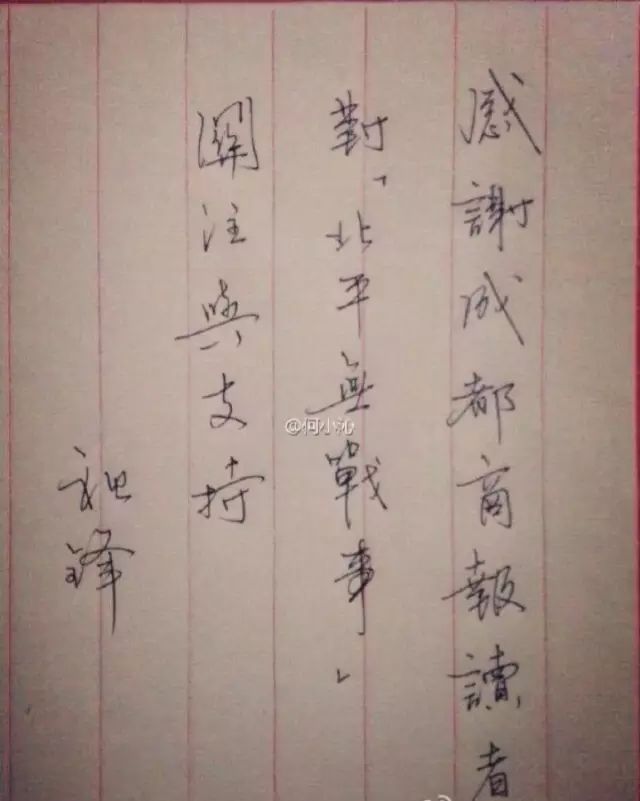 感謝成都商報讀者
對「北平無戰事」
關注與支持
祖鋒
@何小沁